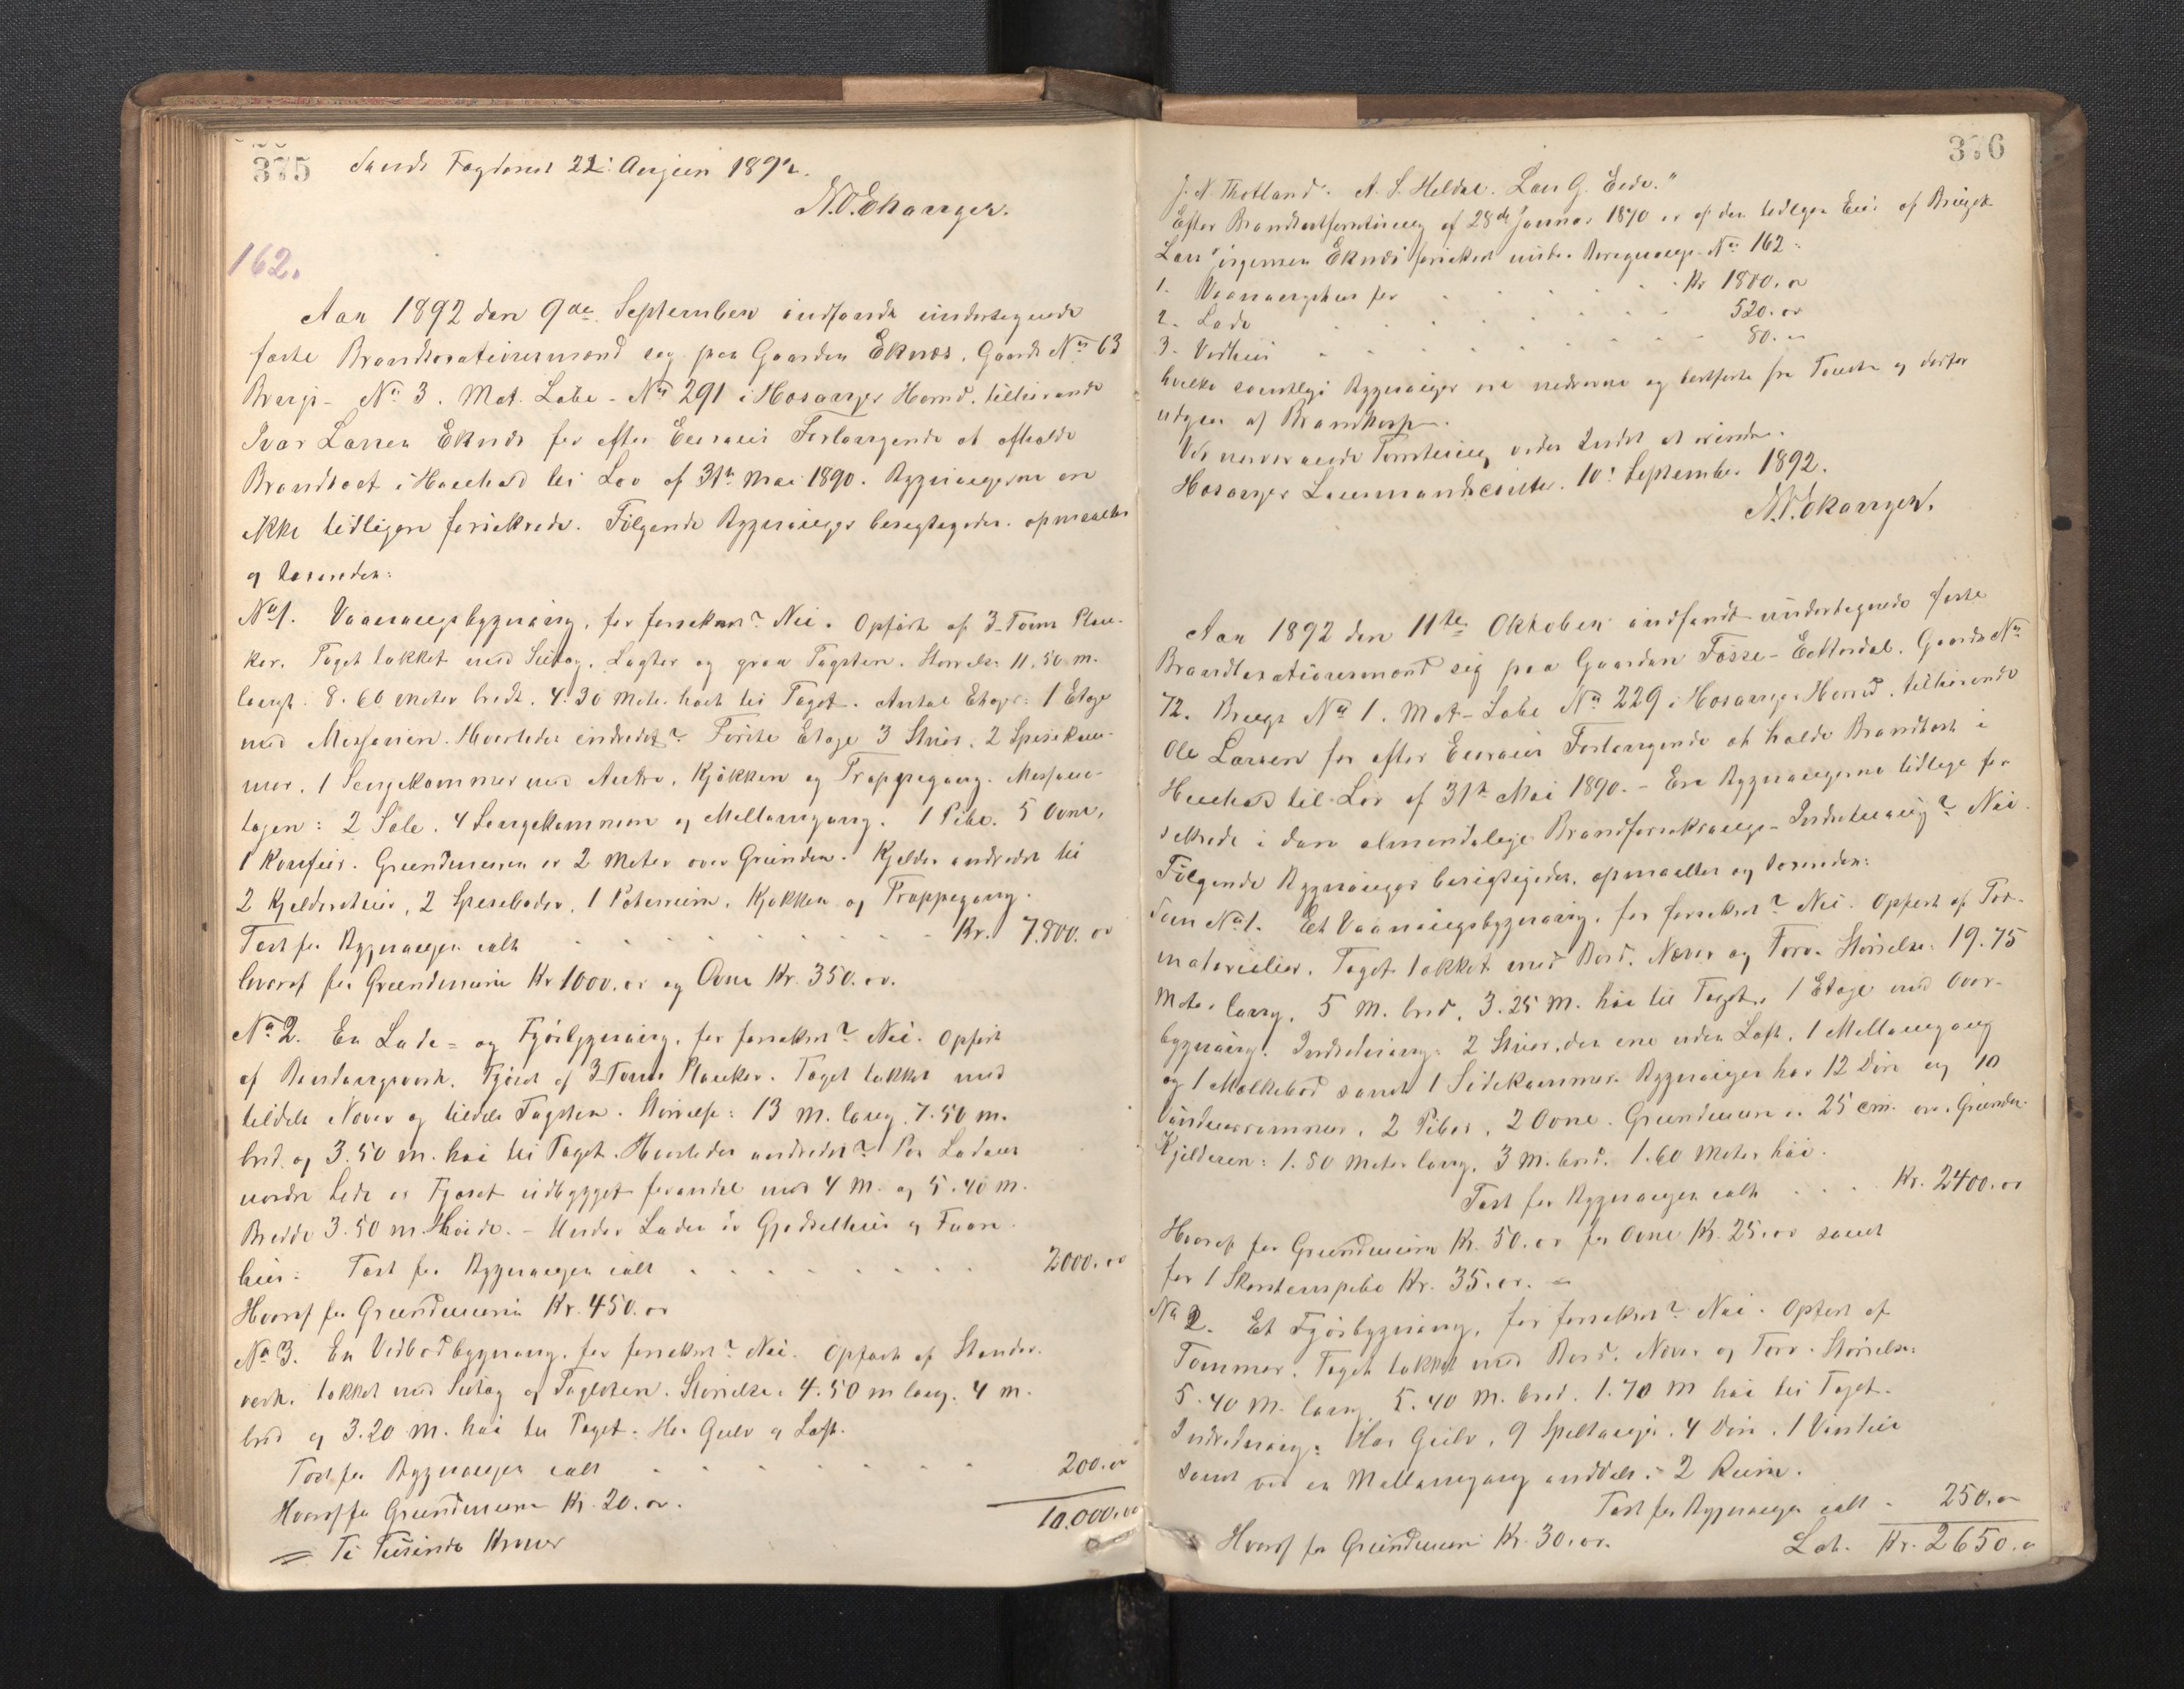 375
Sendt Fogderiet 22: August 1892.
N.O. Skanger.
162.
Aar 1892 den 9de September indfandt undertegnede
faste Brandtaxationsmænd sig paa Gaarden Eknæs, Gaards No 63
Brugs-No 3. Mat. Løbe-No 291 i Hosanger Herred, tilhørende
Ivar Larsen Eknæs for efter Eierens Forlangende at afholde
Brandtaxt i Henhold til Lov af 31te Mai 1890. Bygningerne ere
ikke tidligere forsikrede. Følgende Bygninger besigtigedes, opmaaltes
og taxeredes:
No 1. Vaaningsbygning, før forsikret? Nei. Opført af 3 Toms Plan-
ker. Taget tækket med Sutag, Lægter og graa Tagsten. Størrelse: 11,50 m.
langt. 8.60 meter bredt. 4.30 Meter høit til Taget. Antal Etager: 1 Etage
med Messanin. Hvorledes indredet? Første Etage 3 Stuer, 2 Spisekam-
mer, 1 Sengekammer med Entre, Kjøkken og Trappegang. Messanin-
tagen: 2 Sale, 4 Sengekammere og Mellemgang. 1 Pibe. 5 Ovne,
1 Komfur. Grundmuren er 2 Meter over Grunden. Kjelder indredet til
2 Kjelderstuer, 2 Speseboder, 1 Kjøkken og Trappegang.
Taxt for Bygningen ialt . . . Kr. 7.800.00
hvoraf for Grundmuren Kr 1000.00 og Ovne Kr. 350.00.
No 2. En Lade- og Fjøsbygning, før forsikret? Nei. Opført
af Bindingsverk, Fjøset af 3 Toms Planker. Taget tækket med
tildels Næver og tildels Tagsten. Størrelse: 13 m. lang, 7.50 m.
bred og 3.50 m. høi til Taget. Hvorledes indredet? Paa Ladens
nordre Side er Fjøset indbygget forandel med 4 M. og 5.40 m.
Bredde 3.50 m. Høide. - Under Laden er Gjødselhus og
hus. Taxt for Bygningen ialt . . . 2000.00
Hvoraf for Grundmuren Kr. 450.00
No 3. En Vedbodbygning, før forsikret? Nei. Opført af Stender-
verk, tækket med Sutag og Tagsten. Størrelse: 4.50 m lang, 4 m.
bred og 3.20 m. høi til Taget. Har Gulv og Loft.
Taxt for Bygningen ialt . . . 200.00
Hvoraf for Grundmuren Kr. 20.00.
10.000.00
= Ti Tusinde Kroner
376
J. N. Thotland. A. S. Heldal. Lars G. Eide."
Efter Brandtaxtforretning af 28de Januar 1870 er af den tidligere Eier af Bruget
Lars Jørgensen Eknæs forsikret under Assurance No 162:
1. Vaaningshus for . . . Kr 1800.00
2. Lade . . . 520.00
3. Vedhus . . . 80.00
hvilke samtlige Bygninger ere nedrevne og bortførte fra Tomten og derfor
udgaar af Brandkassen.
Ved nærværende Forretning vides Intet at erindre.
Hosanger Lensmandscontor. 10: September 1892.
N.O. Skanger.
Aar 1892 den 11te Oktober indfandt undertegnede faste
Brandtaxationsmænd sig paa Gaarden Fosse-Eetterdal, Gaards No
72. Brugs No 1. Mat-Løbe No 229 i Hosanger Herred, tilhørende
Ole Larsen for efter Eierens Forlangende at holde Brandtaxt i
Henhold til Lov af 31te Mai 1890. - Ere Bygningerne tidlige for
sikrede i den almindelige Brandforsikrings-Indretning? Nei.
Følgende Bygninger besigtigedes, opmaaltes og taxeredes:
Som No 1. Et Vaaningsbygning, før forsikret? Nei. Opført af
materialier. Taget tækket med Bord, Næver og Torv. Størrelse: 19.75
Meter lang, 5 M. bred, 3.25 M. høi til Taget. 1 Etage med Over-
bygning. Indredning: 2 Stuer, den ene uden Loft, 1 Mellemgang
og 1 Melkebod samt 1 Sidekammer. Bygningen har 12 Døre og 10
Vinduesrammer, 2 Piber, 2 Ovne. Grundmuren er 25 cm. over Grunden.
Kjelderen: 1.80 Meter lang, 3 M. bred, 1.60 Meter høi.
Taxt for Bygningen ialt . . . Kr. 2400.00
Hvoraf for Grundmuren Kr. 50.00 for Ovne Kr. 25.00 samt
for 1 Skorstenspibe Kr. 35.00. -
No 2. Et Fjøsbygning, før forsikret? Nei. Opført af
Tømmer. Taget tækket med Bord, Næver og Torv. Størrelse:
5.40 M. lang, 5.40 M. bred, 1.70 M høi til Taget.
Indredning: Har Gulv, 9 Spiltauger, 4 Døre, 1 Vindue
samt ved en Mellemgang inddelt i 2 Rum.
Taxt for Bygningen ialt - 250.00
Hvoraf for Grundmuren Kr. 30.00.
Lat. Kr. 2650.00